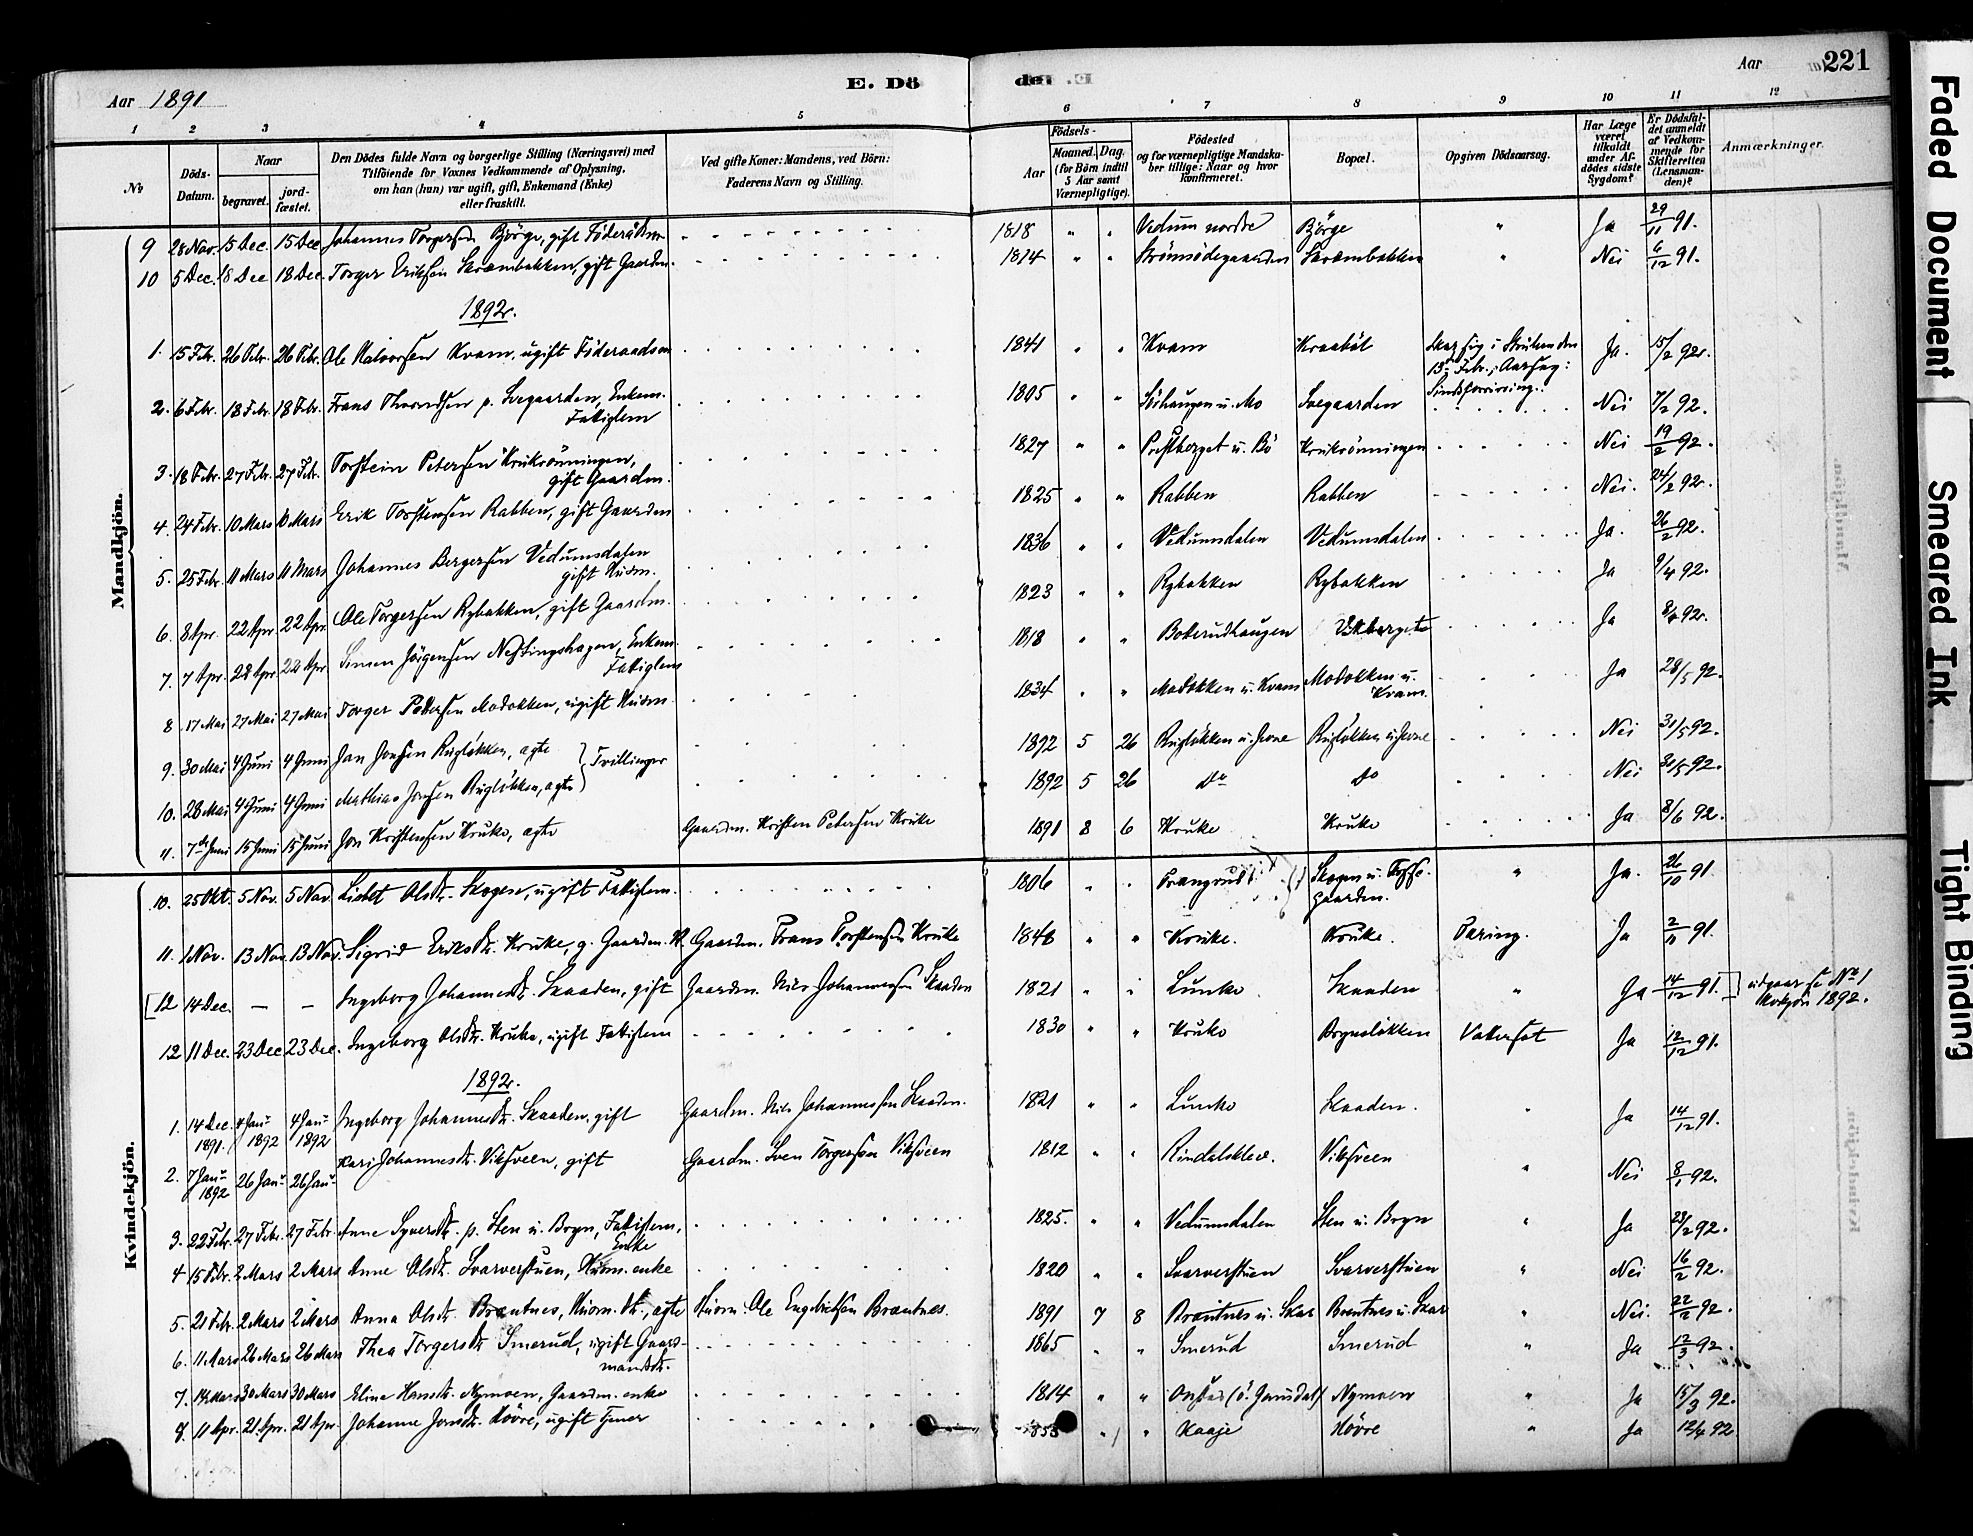 Aar 1891
E. Dö
den E.
Aar
221
1 2 3 4 5 6 7 8 9 10 11 12
№
Döds-Datum.
Naar
begravet.
jord-fæstet.
Den Dödes fulde Navn og borgerlige Stilling (Næringsvei) med
Tilföiende for Voxnes Vedkommende af Oplysning,
om han (hun) var ugift, gift, Enkemand (Enke)
eller fraskilt.
Ved gifte Koner: Mandens, ved Börn:
Faderens Navn og Stilling.
Födsels-
Aar
Maaned. Dag.
(for Börn indtil
5 Aar samt
Værnepligtige).
Födested
og for værnepligtige Mandska-
ber tillige: Naar og hvor
konfirmeret.
Bopæl.
Opgiven Dödsaarsag.
Har Læge
været
tilkaldt
under Af-
dödes sidste
Sygdom?
Er Dödsfal-
det anmeldt
af Vedkom-
mende for
Skifteretten
(Lensman-
den)?
Anmærkninger.
Mandkjön.
9 28 Nov. 15 Dec. 15 Dec Johannes Torgersen Björge, gift Föderaadsm 1818 " " Vedum nordre Björge " Ja 29/11 91.
10 5 Dec. 18 Dec 18 Dec. Torger Eriksen Skrambakken, gift Gaardm. 1814 " " Strömsödegaarden Skrambakken " Nei 6/12 91.
1892.
1. 15 Febr. 26 Febr. 26 Febr. Ole Halvorsen Kvam, ugift Föderaadsm 1841 " " Kvam Kraaböl Ja. 15/2 92.
13de Febr., Aarsag:
Sindsforvirring.
2. 6 Febr. 18 Febr. 18 Febr. Frans Thorsedsen p. Svegaarden, Enkem. 1805 " " Sörhaugen u. Mo Svegaarden Nei 7/2 92.
Fattiglem
3. 18 Febr. 27 Febr. 27 Febr. Torstein Petersen Krukrönningen, 1827 " " Prestberget u. Bö Krukrönningen Nei 19/2 92.
gift Gaardm.
4. 24 Febr. 10 Mars 10 Mars Erik Torstensen Rabben, gift Gaardm 1825 " " Rabben Rabben Nei. 24/2 92.
5. 25 Febr. 11 Mars 11 Mars Johannes Bergersen Vedumsdalen 1836 " " Vedumsdalen Vedumsdalen Ja. 26/2 92.
gift Husm.
6. 8 Apr. 22 Apr 22 Apr. Ole Torgersen Rybakken, gift Gaardm. 1823 " " Rybakken Rybakken Ja 9/4 92.
7. 7 Apr. 28 Apr 22 Apr. Simen Jörgensen Nestingshagen, Enkem. 1818 " " Boterudhaugen Ja 8/4 92.
Fattiglem
8 17 Mai 27 Mai 27 Mai Torger Pedersen Modokken, ugift Husm. 1834 " " Modokken u. Kvam Modokken u. Kvam. Ja 28/5 92.
9. 30 Mai 4 Juni 4 Juni Jan Jonsen Ruglökken, ægte 1892 5 26 Ruglökken u. Jevne Ruglökken u. Jevne Nei 31/5 92.
Tvillinger
10. 28 Mai 4 Juni 4 Juni Mathias Jonsen Ruglökken, ægte 1892 5 26 do do Nei 30/5 92.
11. 7de Juni 15 Juni 15 Juni Jon Kristensen Kruke, ægte Gaardm. Kristen Petersen Kruke 1891 8 6 Kruke Kruke Ja 8/6 92.
Kvindekjön.
10. 25 Okt. 5 Nov. 5 Nov. Lisbet Olsdtr. Skogen, ugift Fattiglem. 1806 " " Prangrud Skogen u. " Ja. 26/10 91
gaarden.
11. 1 Nov. 13 Nov. 13 Nov. Sigrid Eriksdtr. Kruke, g. Gaardm. K. Gaardm. Frans Torstensen Kruke 1848 " " Kruke. Kruke. Tæring. Ja 2/11 91.
[12 14 Dec. — — Ingeborg Johannesdtr. Skaaden, gift Gaardm. Nils Johannessen Skaaden 1821 " " Lunke Skaaden " Ja 14/12 91.] udgaar se No 1
Kvkjön 1892.
12 11 Dec. 23 Dec 23 Dec. Ingeborg Olsdtr. Kruke, ugift Fattiglem 1830 " " Kruke Brynslökken Vatersot Ja 12/12 91.
1892.
1. 14 Dec. 1891. 4 Jan. 1892 4 Jan. 1892 Ingeborg Johannesdtr. Skaaden, gift Gaardm. Nils Johannessen Skaaden. 1821 " " Lunke Skaaden. " Ja 14/12 91.
2. 7 Jan. 1892 26 Jan. 26 Jan. Kari Johannesdtr. Viksveen, gift Gaardm. Sven Torgersen Viksveen 1812 " " Rindalsklev. Viksveen " Nei 8/1 92.
3. 22 Febr. 27 Febr. 27 Febr. Anne Syversdtr. p. Sten u. Bryn, Fattiglem, 1825. " " Vedumsdalen Sten u. Bryn " Ja 23/2 92.
Enke
4 15 Febr. 2 Mars 2 Mars Anne Olsdtr. Svarverstuen, Husm. enke 1820 " " Svarverstuen Svarverstuen " Nei 16/2 92.
5. 21 Febr. 2 Mars 2 Mars Anna Olsdtr. Bræntnes, Husm. dtr., ægte Husm. Ole Engebretsen Bræntnes. 1891 7 8 Bræntnes u. Skar Bræntnes u. Skar " Nei. 22/2 92.
6. 11 Mars 26 Mars 26 Mars Thea Torgersdtr. Smerud, ugift Gaard- 1865 " " Smerud Smerud " Ja 12/3 92.
mandsdtr.
7. 14 Mars 30 Mars 30 Mars Eline Hansdtr. Nymoen, Gaardm. enke 1814 " " Nymoen " Ja 15/3 92.
8. 11 Apr. 21 Apr. 21 Apr. Johanne Jonsdtr. Hövre, ugift Tjener 1853 " " Kaaje Hövre " Ja 12/4 92
Faded Document
Smeared Ink
Tight Binding